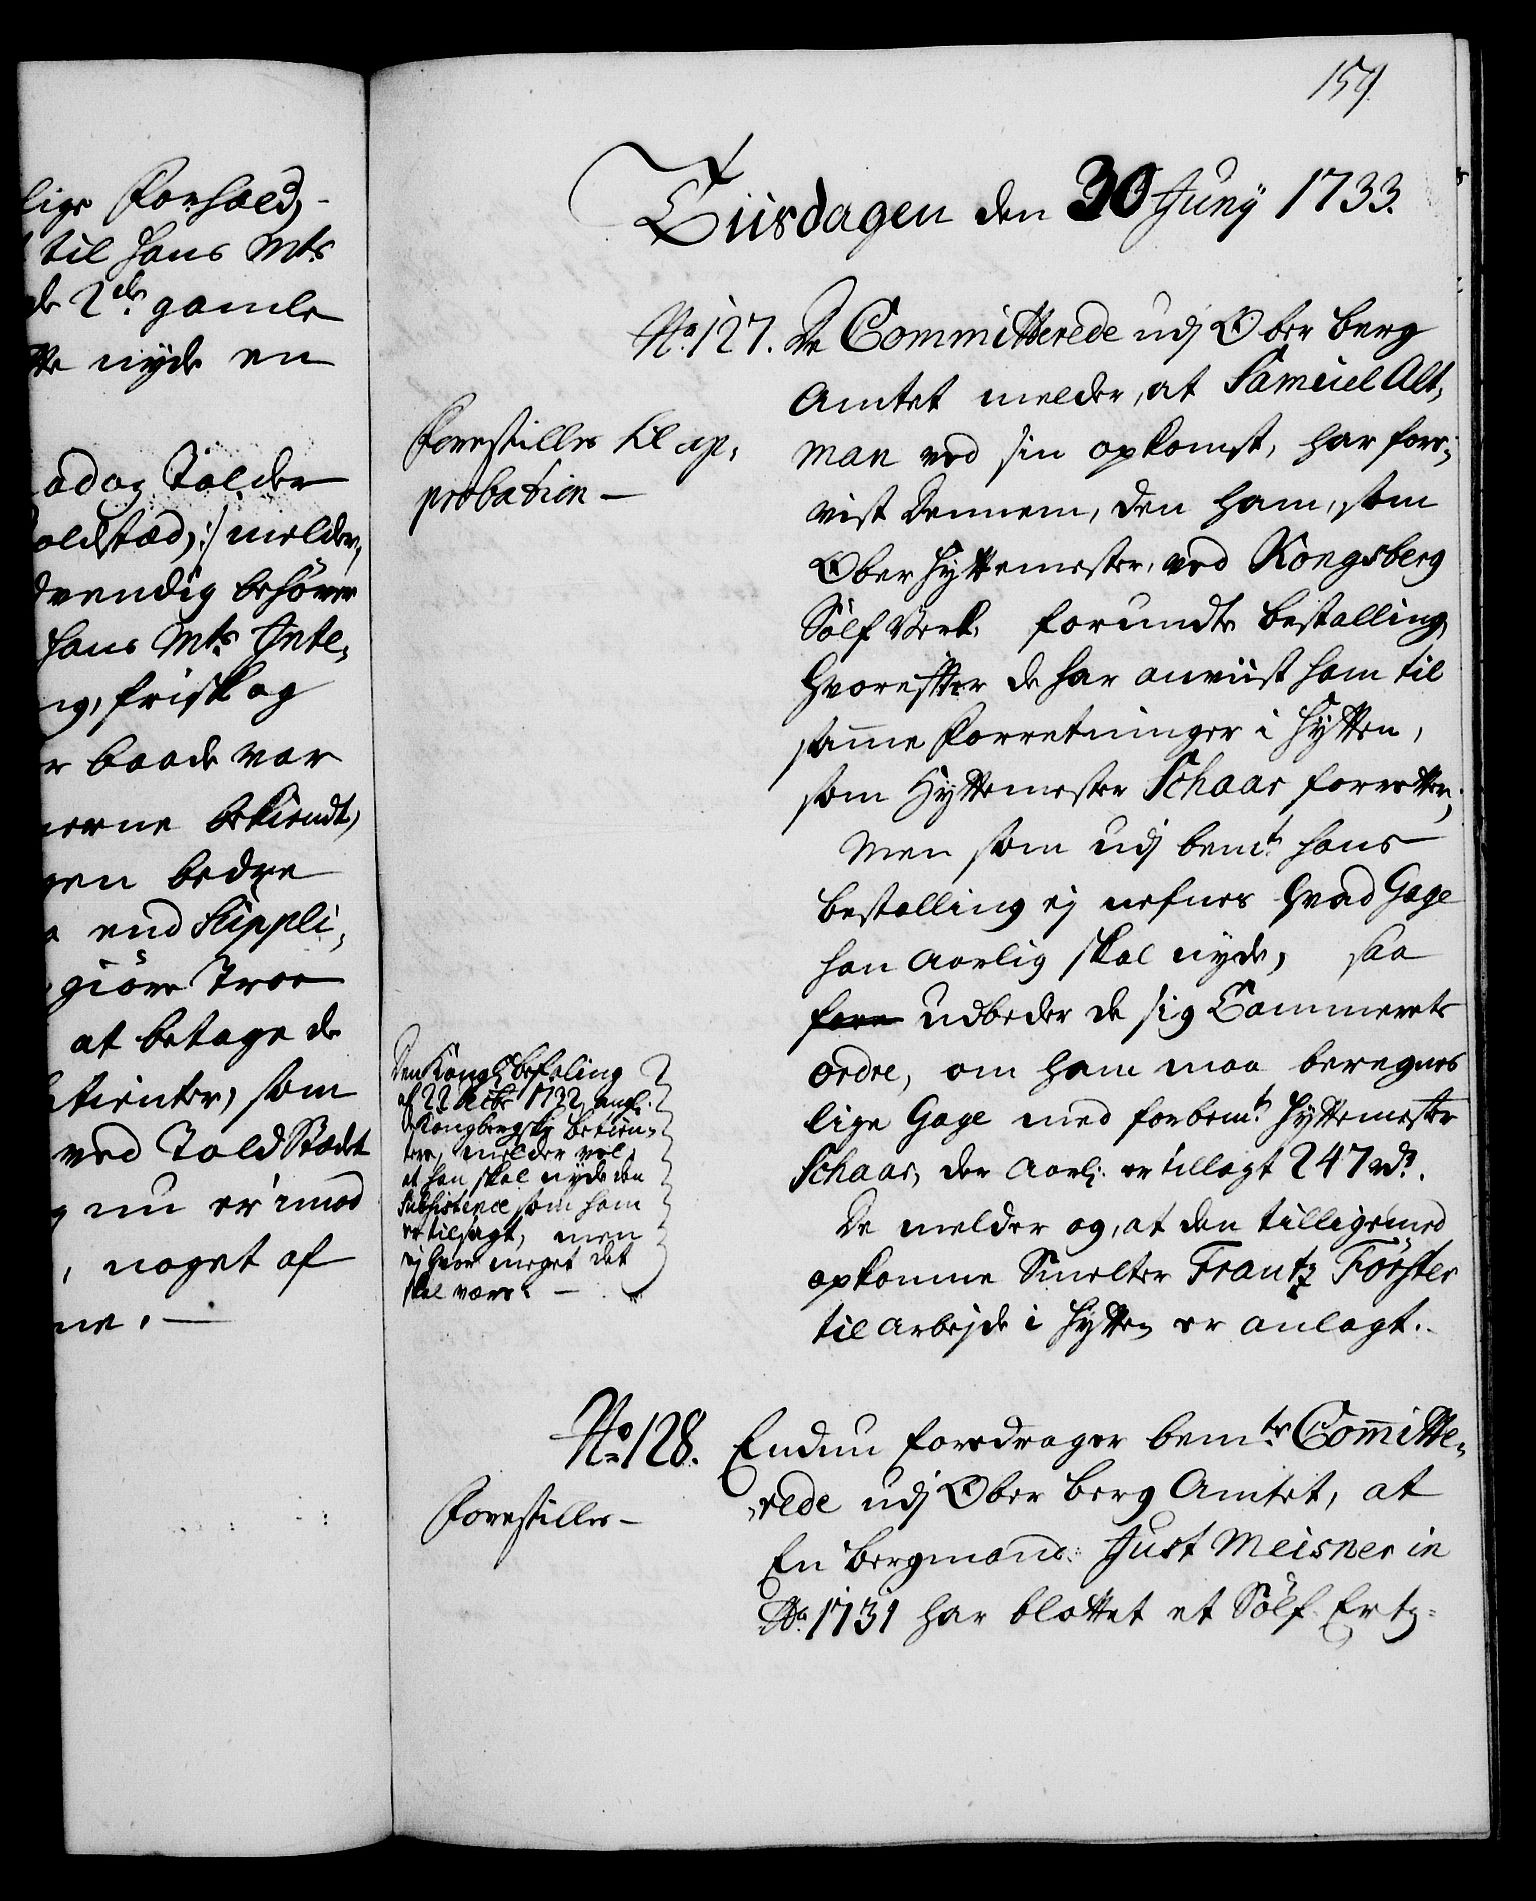 lige Forhold,
til hans Mts
de 2de gamle
nyde en
og Tolder
melder,
dvendig behöver
hans Mts Inte,
frisk og
r baade var
erne bekiendt,
gen bedre
end Suppli,
giöre Troe
at betage de
tienter, som
ved ToldStædet
nu er imod
, noget af
ne. —
159
Tiisdagen den 30 Juny 1733.
No. 127. De Committerede udj Ober berg
Amtet melder, at Samuel Alt,
man ved sin opkomst, har fore,
vist Dennem, den ham, som
Ober Hyttemester, ved Kongsberg
Sölf Verk, forundte bestalling,
hvorefter de har anviist ham til
samme Forretninger i Hytten,
som Hyttemester Schaar forretter;
Men som udj bemte hans
bestalling ej nefnes hvad Gage
han Aarlig skal nyde, saa
fore udbeder de sig Cammerets
ordre, om ham maa beregnes
lige Gage med forbemte Hyttemester
Schaar, der Aarl: er tillagt 247 rdr.
De melder og, at den tilligemed
opkomne Smelter Frantz Förster
til Arbejde i Hytten er anlagt.
Forestilles til ap,
probation —
Den Kongl: befaling
af 22 Decbr 1732, angl:
Kongbergske betien,
tere, melder vel,
at han skal nyde den
Subsistence som ham
er tilsagt, men
ej hvor meget det
skal være. —
No. 128. Endnu foredrager bemte Committe,
rede udj Ober berg Amtet, at
En bergmand: Just Meisner in
Ao. 1731 har blottet et Sölf Ertz=
Forestilles —